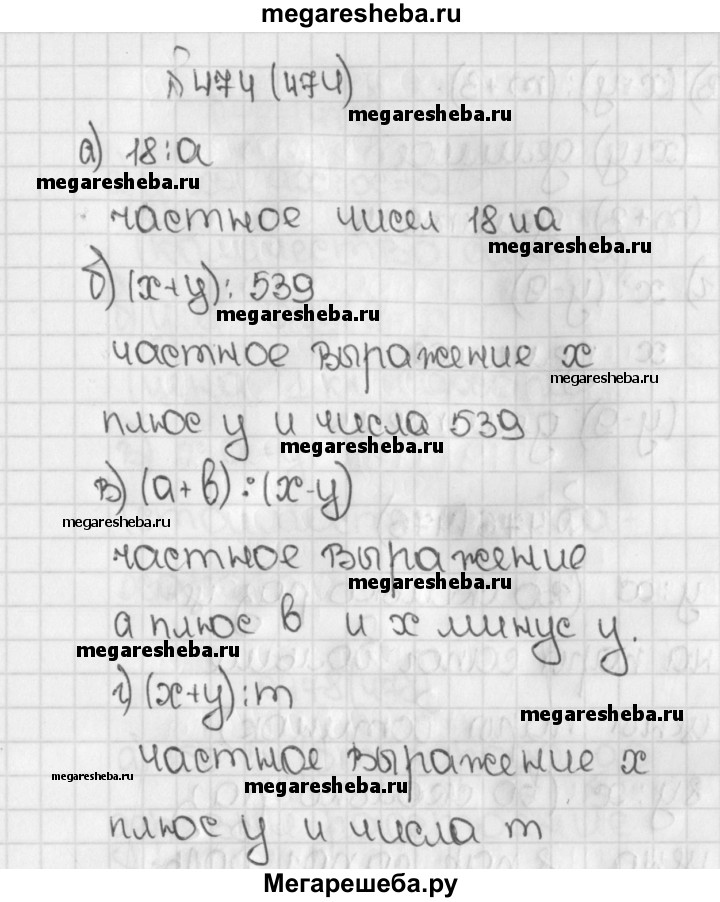 megaresheba.ru
№474 (474)
megaresheba.ru
а) 18:а
megaresheba.ru
частное чисел 18 и а
megaresheba.ru
б) (x+y): 539
megaresheba.ru
частное выражение x
megaresheba.ru
плюс y и числа 539
megaresheba.ru
в) (а+в):(x-y)
megaresheba.ru
частное выражение
megaresheba.ru
а плюс в и x минус y.
megaresheba.ru
г) (x+y):m
megaresheba.ru
частное выражение x
megaresheba.ru
megaresheba.ru
плюс y и числа m
Мегарешеба.ру